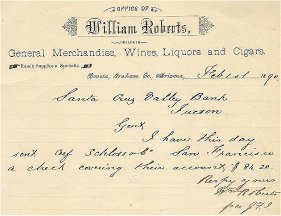 OFFICE OF
William Roberts,
DEALER IN
General Merchandise, Wines, Liquors and Cigars.
Ranch Supplies a Specialty.
Graham Co., Arizona, Feb 1st 1890
Santa Cruz Valley Bank
Tucson
Gent,
I have this day
sent a/f Schloss & San Francisco
a check covering their account, $86.20
Respy yours
Wm Roberts
per